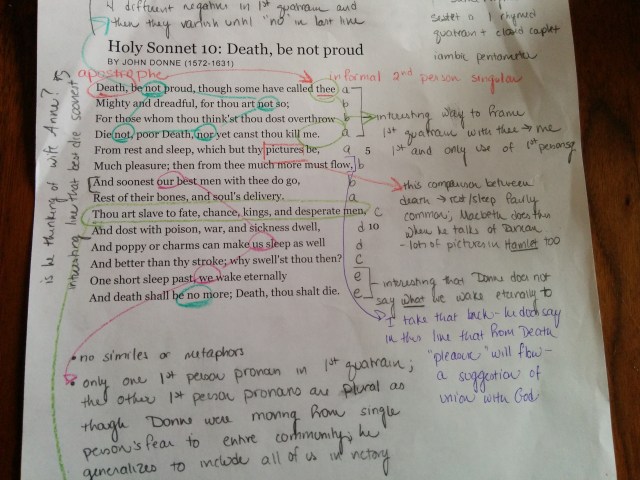 4 different negatives in 1st quatrain and
then they vanish until "no" in last line
sestet is 1 rhymed
quatrain + closed couplet
iambic pentameter
Holy Sonnet 10: Death, be not proud
BY JOHN DONNE (1572-1631)
apostrophe
informal 2nd person singular
Death, be not proud, though some have called thee a
Mighty and dreadful, for thou art not so; b
For those whom thou think'st thou dost overthrow b
Die not, poor Death, nor yet canst thou kill me. a
From rest and sleep, which but thy pictures be, a 5
Much pleasure; then from thee much more must flow, b
And soonest our best men with thee do go, b
Rest of their bones, and soul's delivery. a
Thou art slave to fate, chance, kings, and desperate men, c
And dost with poison, war, and sickness dwell, d 10
And poppy or charms can make us sleep as well d
And better than thy stroke; why swell'st thou then? c
One short sleep past, we wake eternally e
And death shall be no more; Death, thou shalt die. e
interesting way to frame
1st quatrain with thee → me
1st and only use of 1st person sg
this comparison between
death → rest/sleep fairly
common; Macbeth does this
when he talks of Duncan
- lots of pictures in Hamlet too
- interesting that Donne does not
say what we wake eternally to
I take that back - he does say
in this line that from Death
"pleasure" will flow -
a suggestion of
union with God
is he thinking of wife Anne?
interesting line that best die sooner?
• no similes or metaphors
• only one 1st person pronoun in 1st quatrain;
the other 1st person pronouns are plural as
though Donne were moving from single
person's fear to entire community; he
generalizes to include all of us in victory